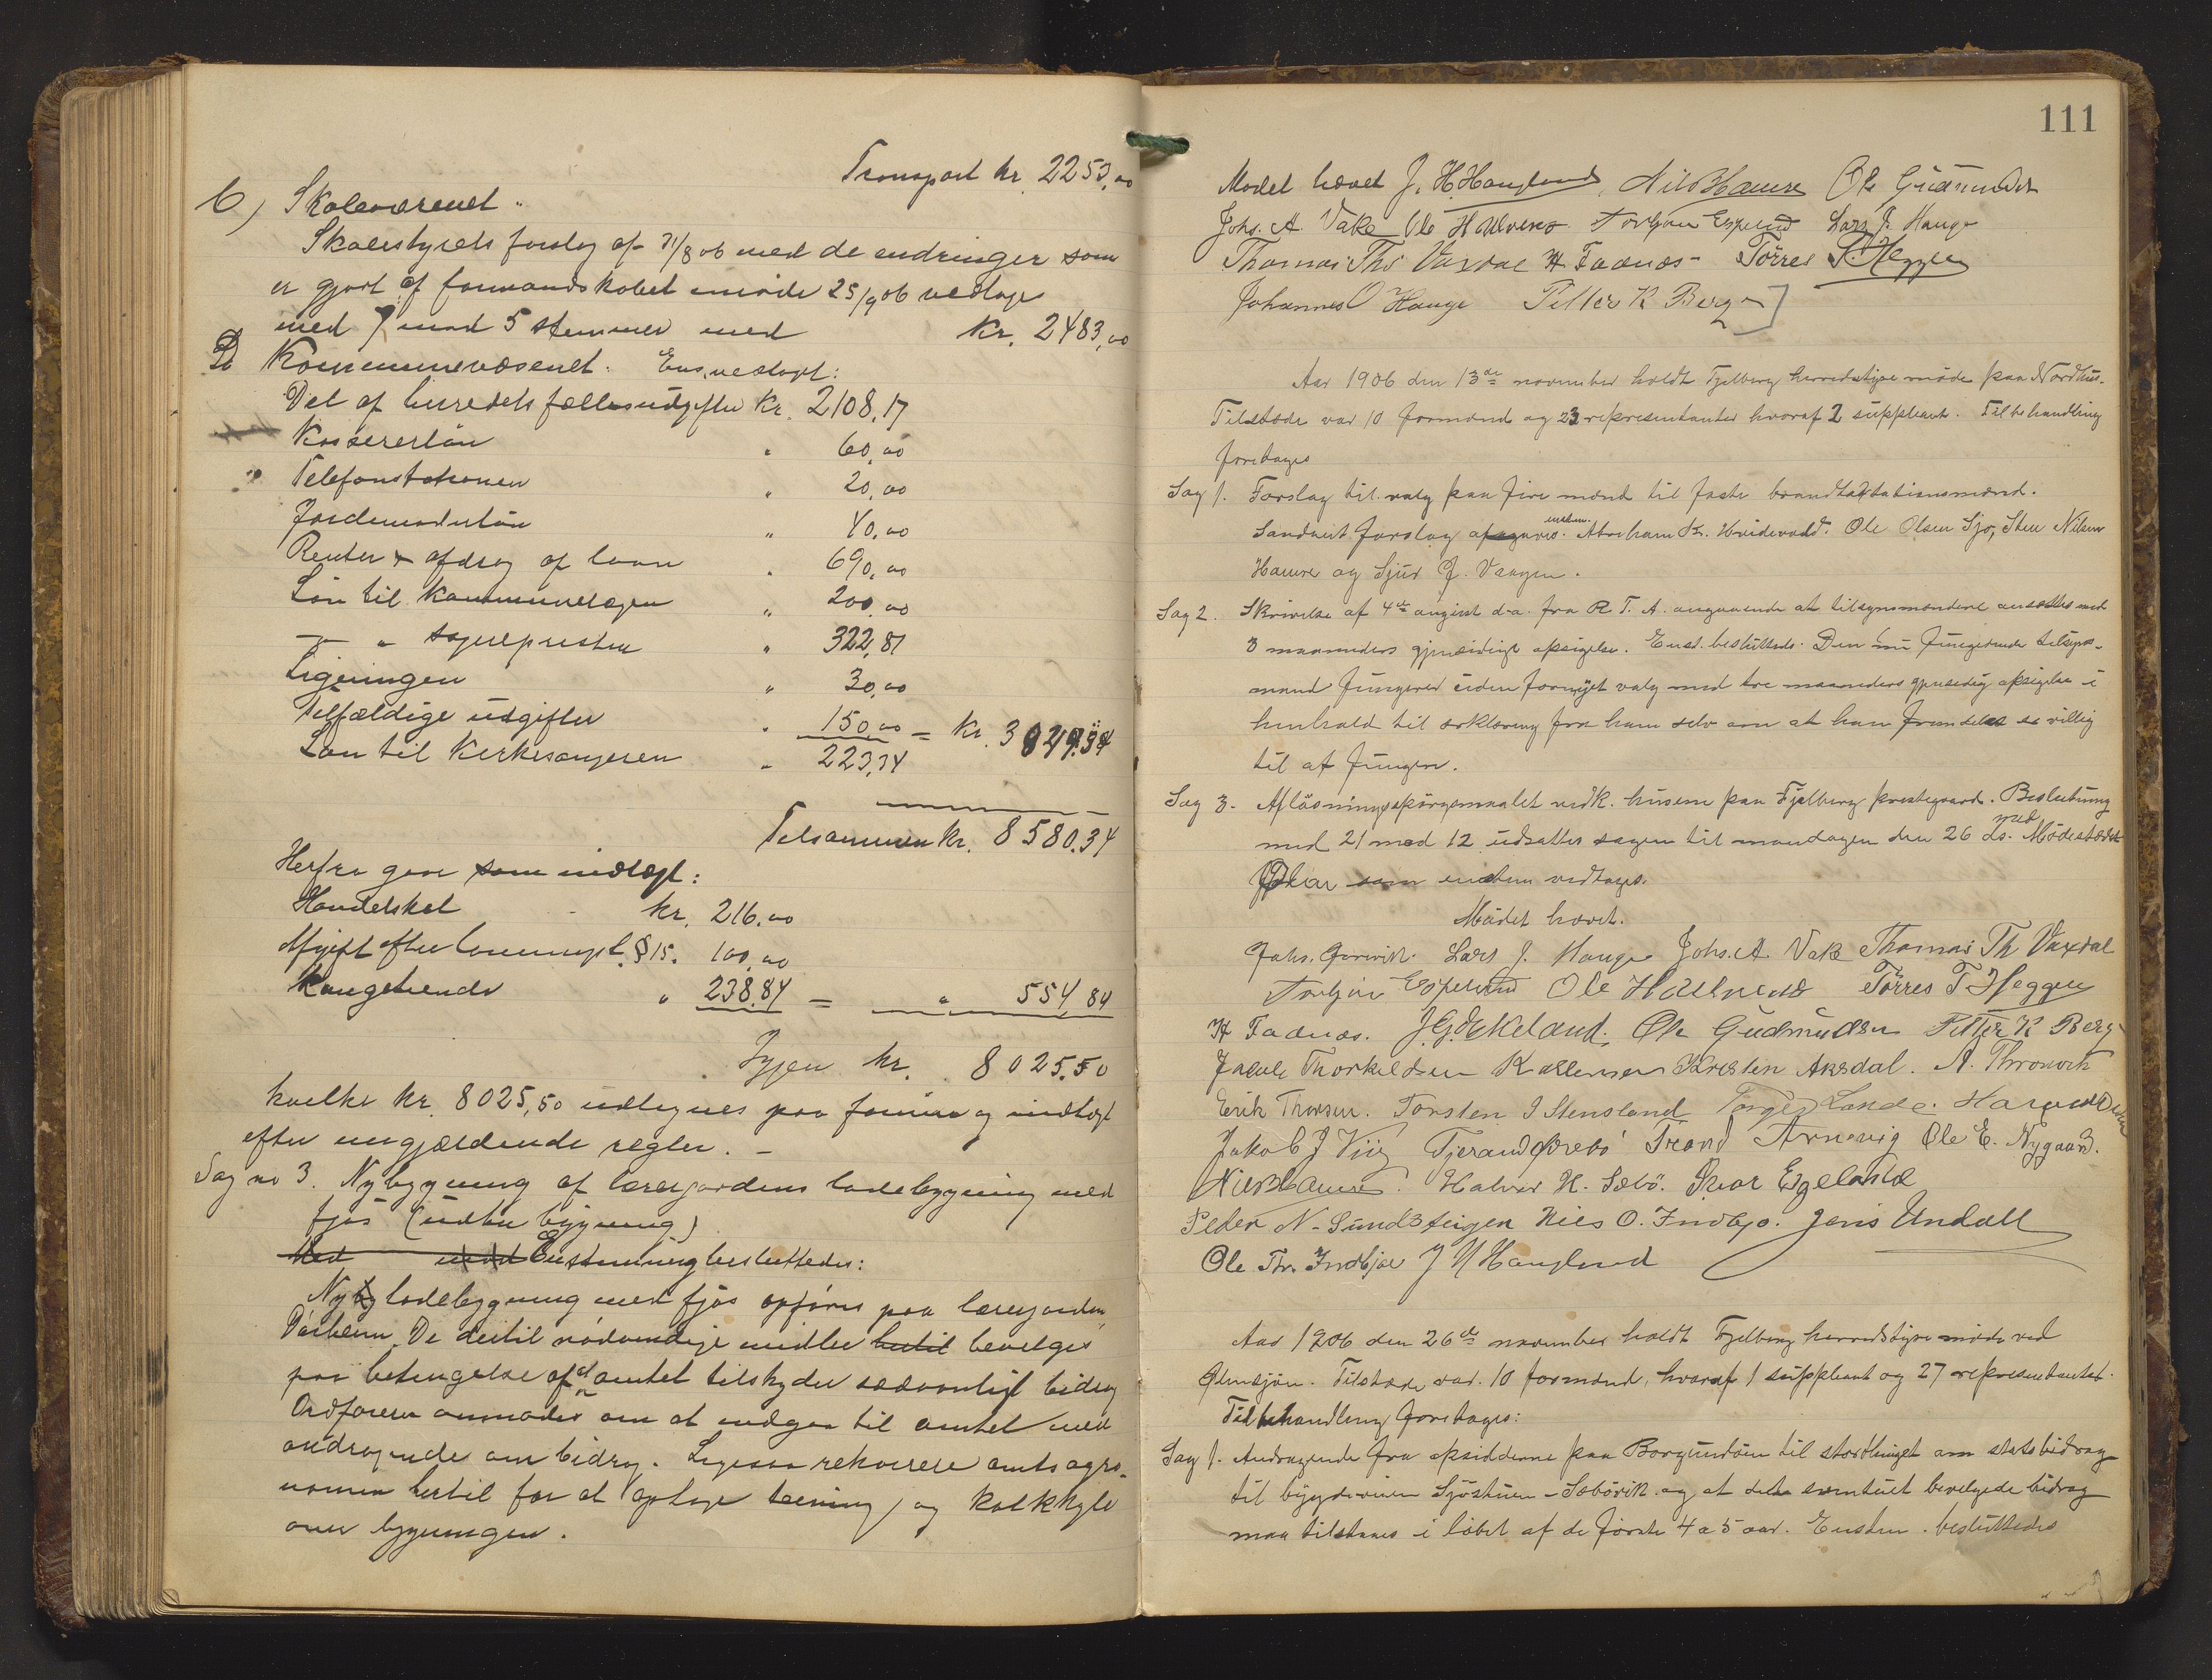 Transport kr. 2253,00
C) Skolevæsenet.
Skolestyrets forslag af 31/8 06 med de endringer som
er gjort af formandskabet i møde 25/9 06 vedtoges
med 7 mod 5 stemmer med kr. 2483,00
D Kommunevæsenet. Ens. vedtaget:
Del af herredets fællesudgifter kr. 2108.17
Kassererløn " 60,00
Telefonstationen " 20,00
Jordemoderløn " 40,00
Renter & afdrag af laan " 690,00
Løn til kommunelægen " 200,00
— " — sognepresten " 322,81
Ligningen " 30,00
Tilfældige udgifter " 150,00 = kr. 3
Løn til Kirkesangeren " 223,34
Tilsammen kr. 8580.34
Herfra gaar som indtægt:
Handelskat kr. 216.00
Afgift efter § 15. 100,00
" 238.84 = " 554,84
Igjen kr. 8025.50
hvilke kr. 8025,50 udlignes paa formue og indtægt
efter nugjældende regler. —
Sag no 3. Nybygning af lærergardens ladebygning med
fjøs (udhusbygning)
Med mod Enstemmig besluttedes:
Ny ladebygning med fjøs opføres paa lærergarden
De dertil nødvendige midler hertil bevilges
paa betingelse af at amtet tilskyder sædvanligt bidrag
Ordføreren anmodes om at indgaa til amtet med
andragende om bidrag. Ligesaa rekvirere amtsagro-
nomen hertil for at optage tegning og kalkyle
over bygningen.
111
Mødet hævet J. H. Haugland, Nils Hamre Ole Gudmundsen
Johs. A. Vake Ole Halvorsen Torbjørn Espeland Lars J. Hauge
Thomas Ths Vaxdal H Faanæs Tørres T. Heggen
Johannes O Hauge Petter K Berge
Aar 1906 den 13de november holdt Fjelberg herredstyre møde paa Nordhus.
Tilstede var 10 formænd og 23 representanter hvoraf 2 suppleant. Til behandling
foretages
Sag 1. Forslag til valg paa fire mænd til faste brandtakstationsmænd.
Samdrægt forslag afgaves: Abraham Kr. Ole Olsen Sjo, Sten Nilsen
Hamre og Sjur J. Vaagen.
Sag 2. Skrivelse af 4de august d.a. fra R. T. A. angaaende at tilsynsmændene ansættes med
3 maaneders gjensidige opsigelse. Enst. besluttede: Den nu fungerende tilsyns-
mand fungerer uden fornyet valg med tre maaneders gjensidig opsigelse i
henhold til erklæring fra ham selv om at han fremdeles er villig
til at fungere.
Sag 3. Afløsningsspørgsmaalet vedk. husene paa Fjelberg prestegaard. Beslutning
med 21 mod 12 udsattes sagen til mandagen den 26 ds. Mødestedet
Ølen som enstem vedtages.
Mødet hævet.
Johs. Lars J. Hauge Johs. A. Vake Thomas Th Vaxdal
Torbjørn Espeland Ole Halvorsen Tørres T. Heggen
H Faanæs. J. G. Ekeland. Ole Gudmundsen Petter K Berge
Jakob Thorkildsen K Kristen Aksdal. A.
Erik Thorsen. Torsten I Stensland Torger Lande.
Jakob J Viig Tjerand Trond Arnevig Ole E. Nygaard.
Nils Hamre. Halvor H. Sæbø. Ivar Egeland
Peder N. Sundsteigen Nils O. Indbjo. Jens Undall
Ole Th. Indbjoe J H Haugland
Aar 1906 den 26de november holdt Fjelberg herredstyre møde ved
Ølensjøen. Tilstede var 10 formænd, hvoraf 1 suppleant og 27 representanter.
Til behandling foretages:
Sag 1. Andragende fra opsidderne paa Borgundøen til storthinget om statsbidrag
til bygdeveien Sjøstuen – Sæbøvik og at det eventuelt bevilgede bidrag
maa tilstaaes i løbet af de første 4 a 5 aar. Enstem. besluttedes